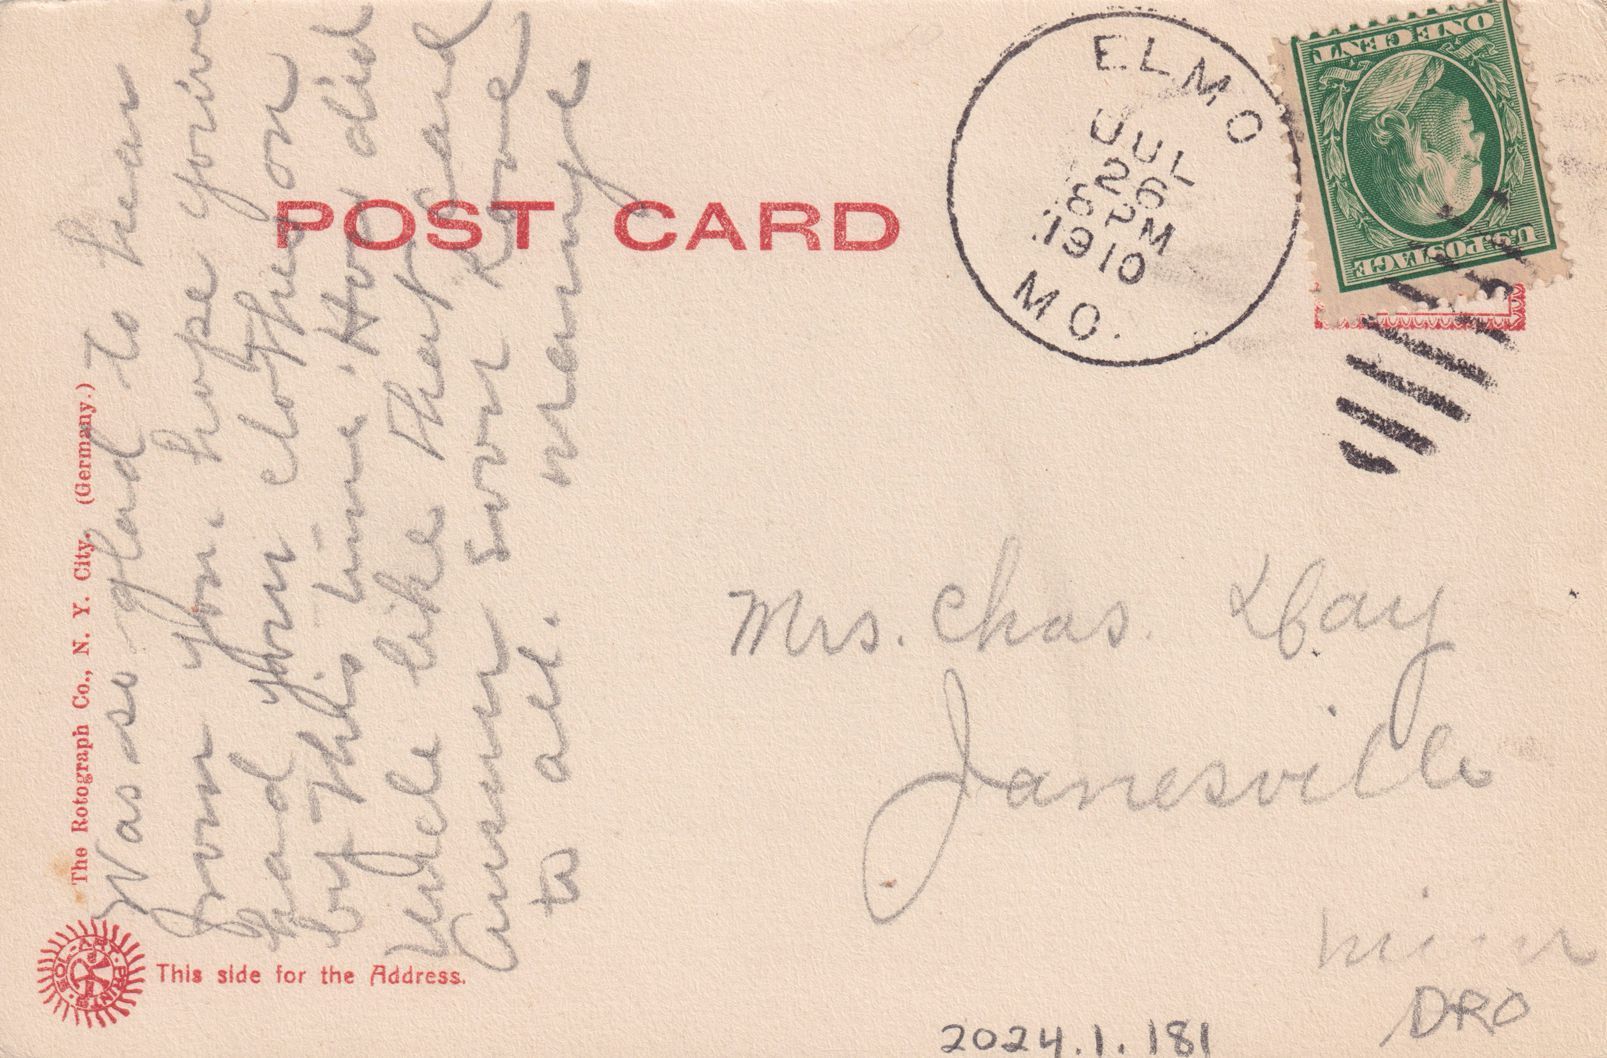 POST CARD
ELMO
JUL
26
8 PM
1910
MO.
ONE CENT
U.S. POSTAGE
Was so glad to hear
from you. hope you've
had your clothes on
by this time. How did
Uncle like that card
Answer soon Love
to all.
Mrs. Chas. Day
Janesville
Minn
The Rotograph Co., N. Y. City. (Germany.)
SOL-ART PRINTS
This side for the Address.
2024.1.181
DRO